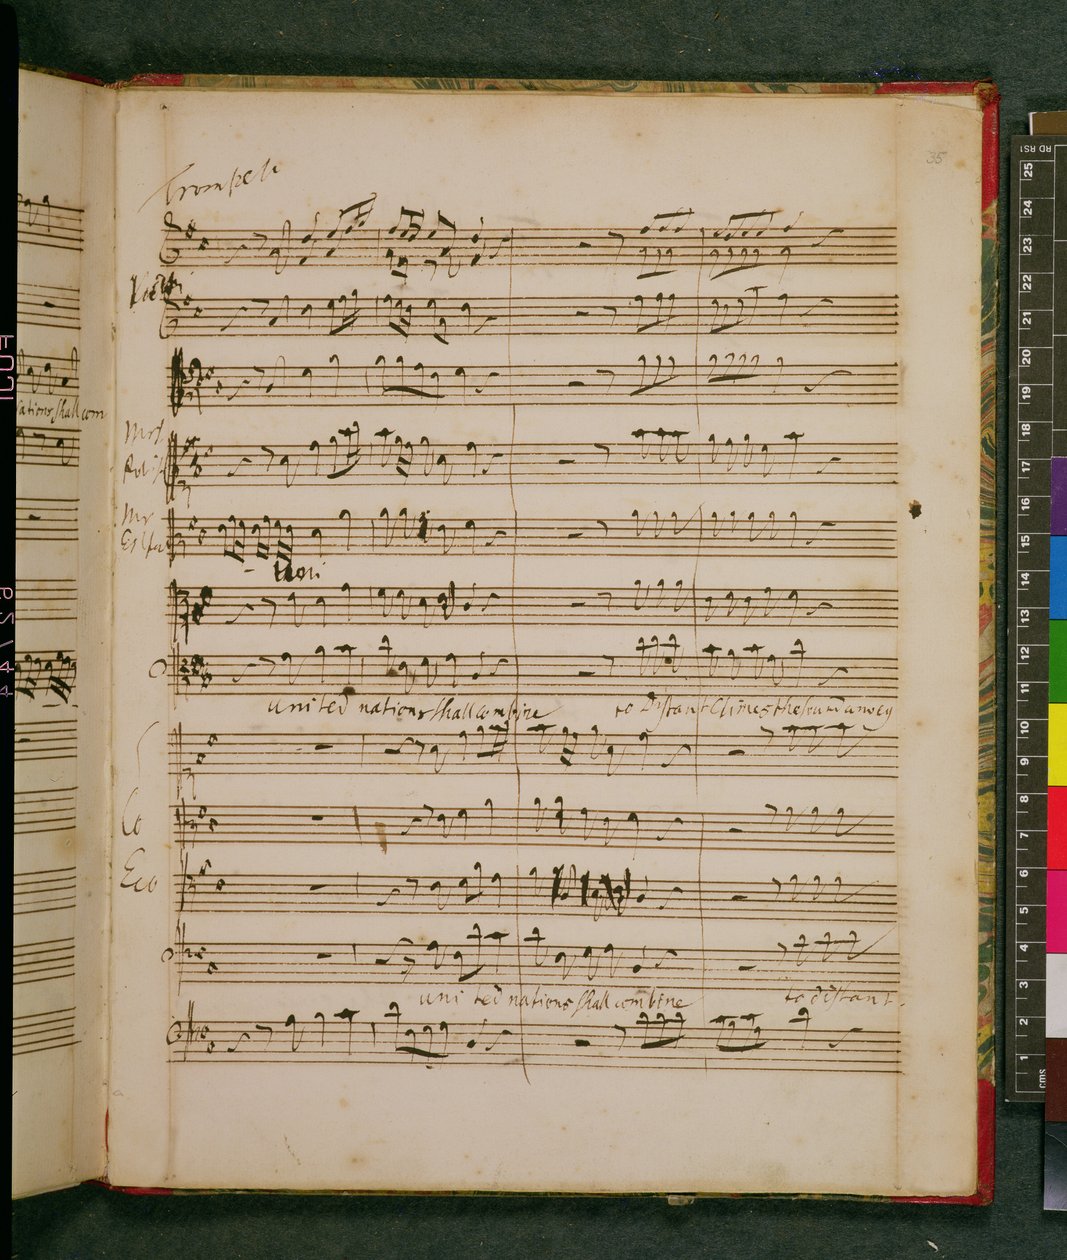 35
Trompeti
nations shall com
Mrs
Mr
Tuoni
united nations shall combine to Distant Climes the sound convey
Co
Eco
united nations shall combine to distant
RD RS1
25
24
23
22
21
20
19
18
17
16
15
14
13
12
11
10
9
8
7
6
5
4
3
2
1
cms